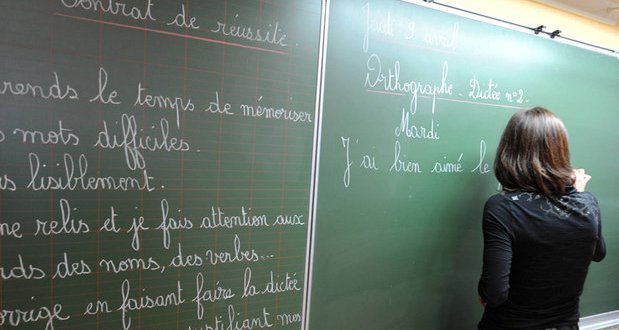 Contrat de réussite.
rends le temps de mémoriser
s mots difficiles.
is lisiblement.
me relis et je fais attention aux
rds des noms, des verbes...
orrige en faisant faire la dictée
justifiant mes
Jeudi 9 avril
Orthographe - Dictée n°2.
Mardi
J'ai bien aimé le